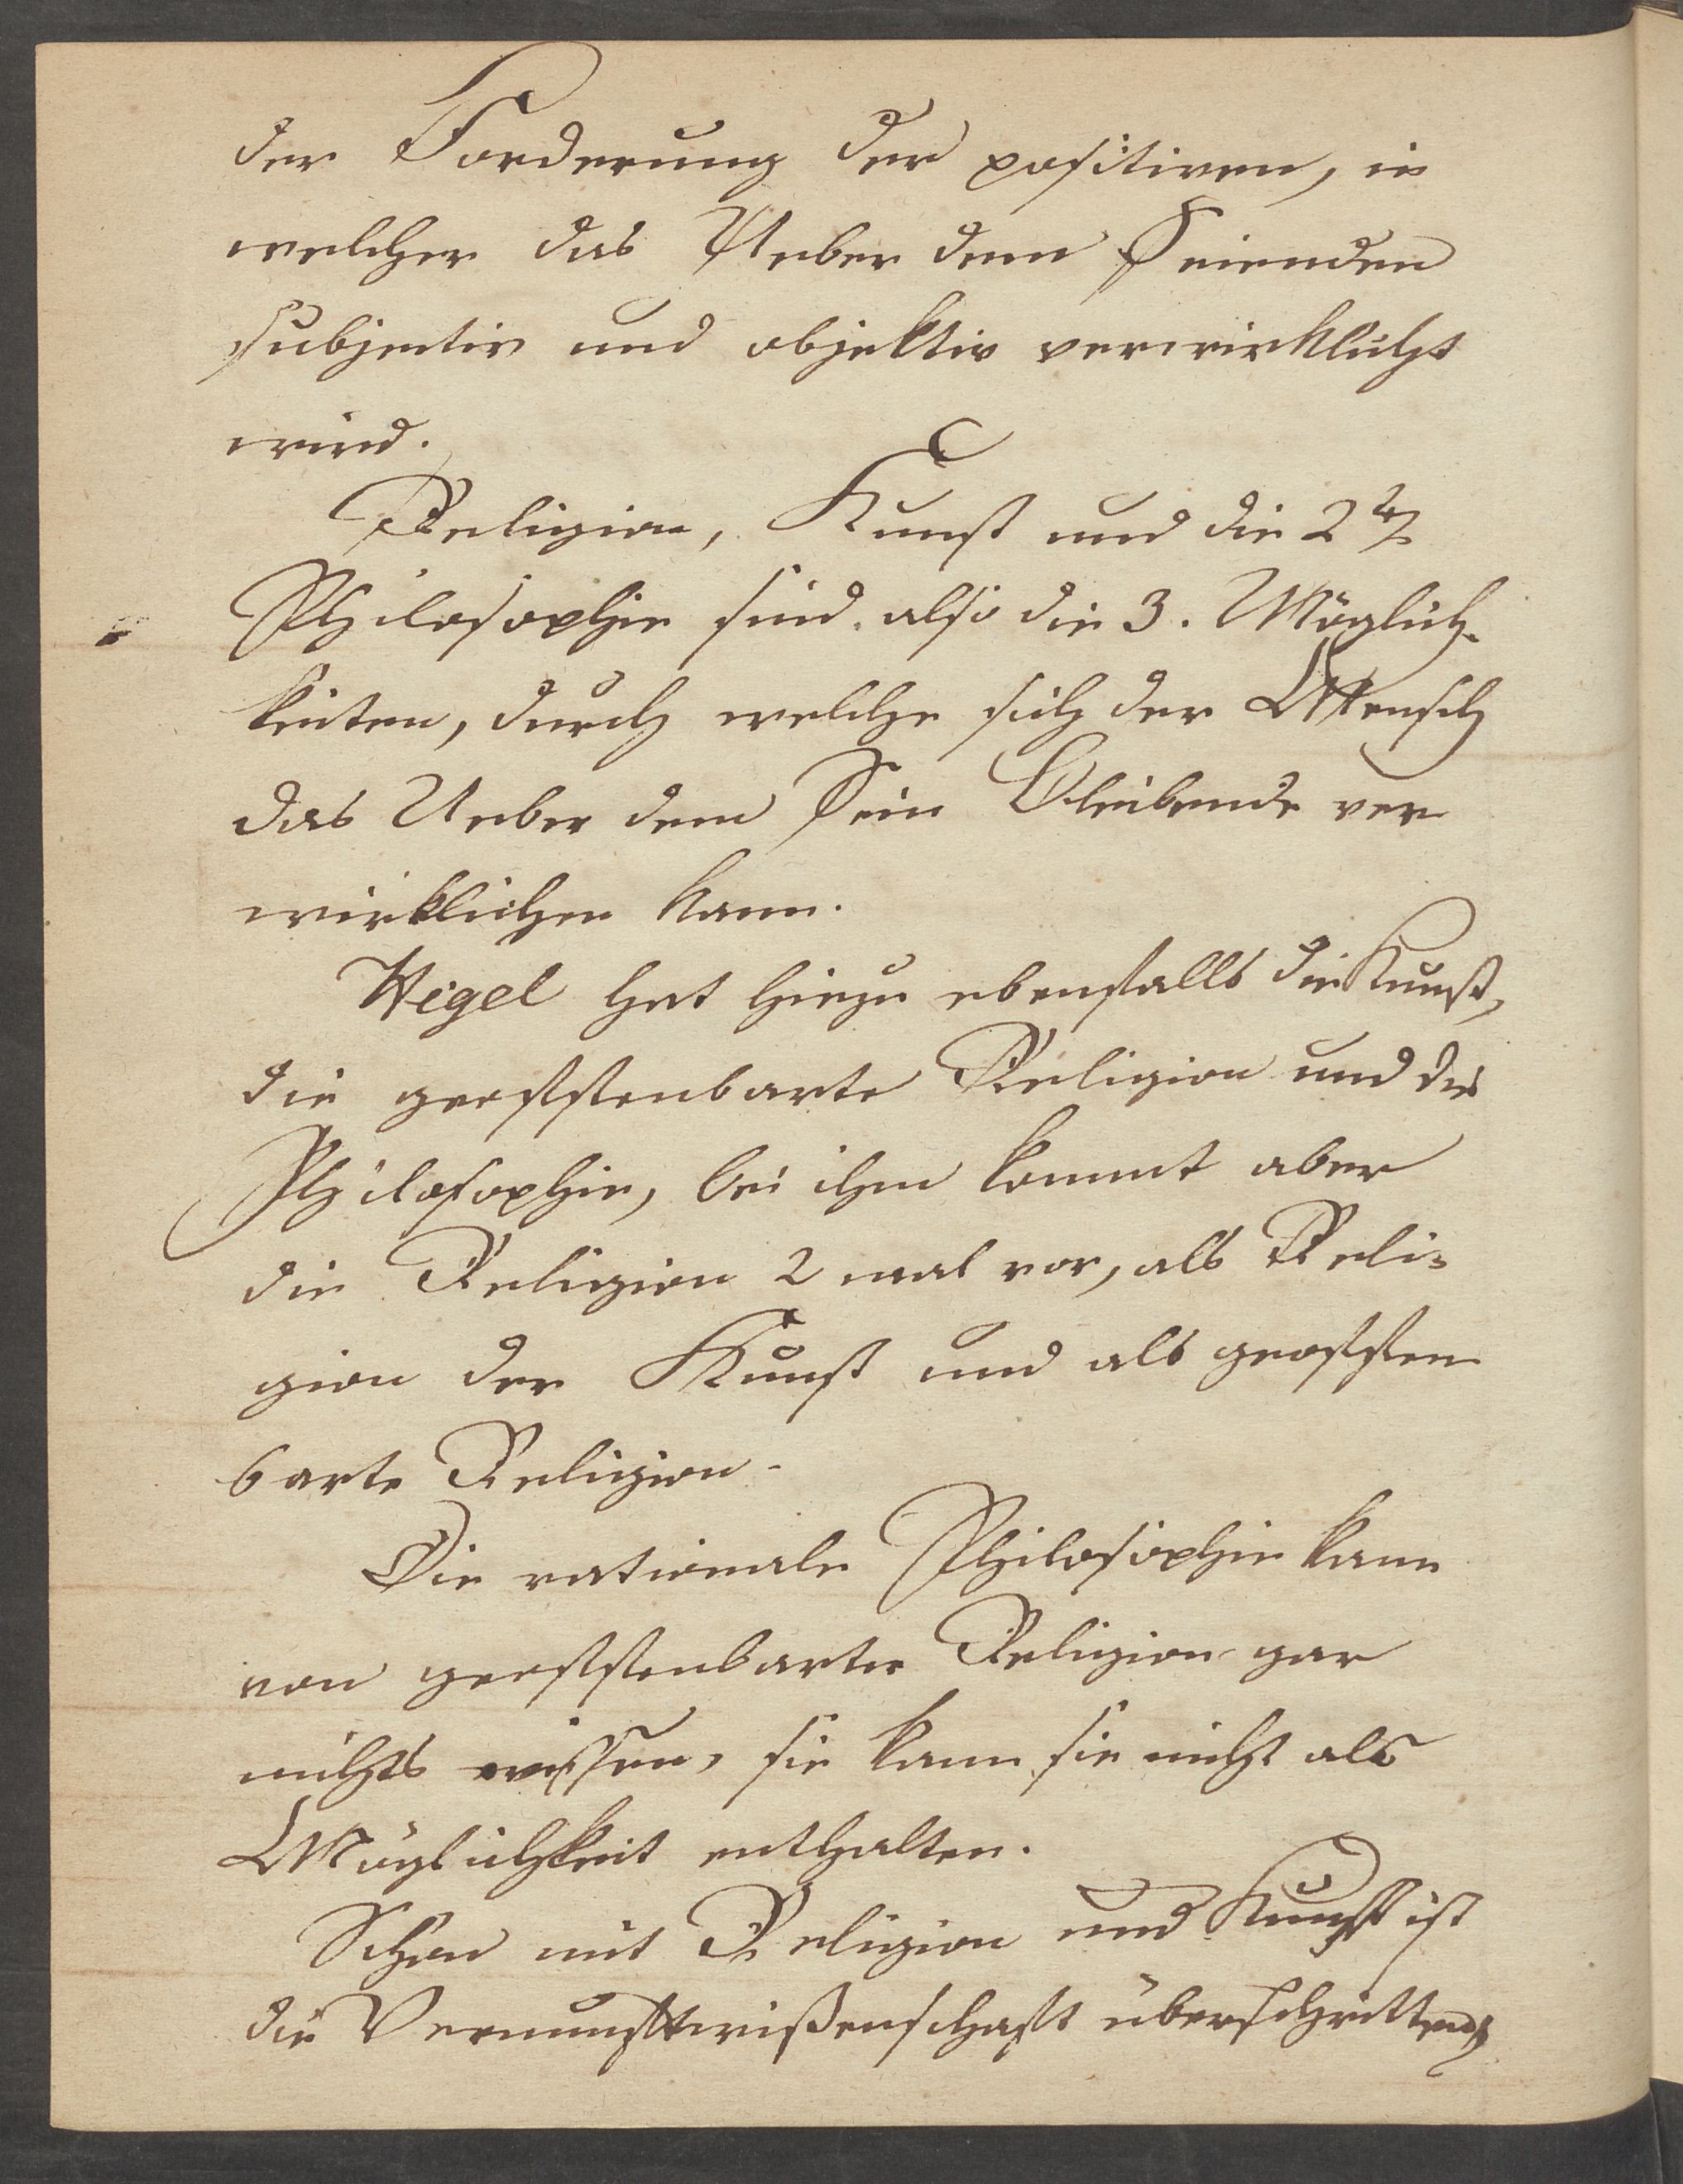 der Forderung der positiven, in
welcher das Ueber dem Seienden
subjectiv und objektiv verwirklicht
wird.
Religion, Kunst und die 2te
Philosophie sind also die 3. Möglich-
keiten, durch welche sich der Mensch
das Ueber dem Sein Bleibende ver
wirklichen kann.
Hegel hat hiezu ebenfalls die Kunst,
die geoffenbarte Religion und die
Philosophie, bei ihm kommt aber
die Religion 2 mal vor, als Reli-
gion der Kunst und als geoffen
barte Religion.
Die rationale Philosophie kann
von geoffenbarter Religion gar
nichts wissen, sie kann sie nicht als
Möglichkeit enthalten.
Schon mit Religion und Kunst ist
die Vernunftwißenschaft überschritten,